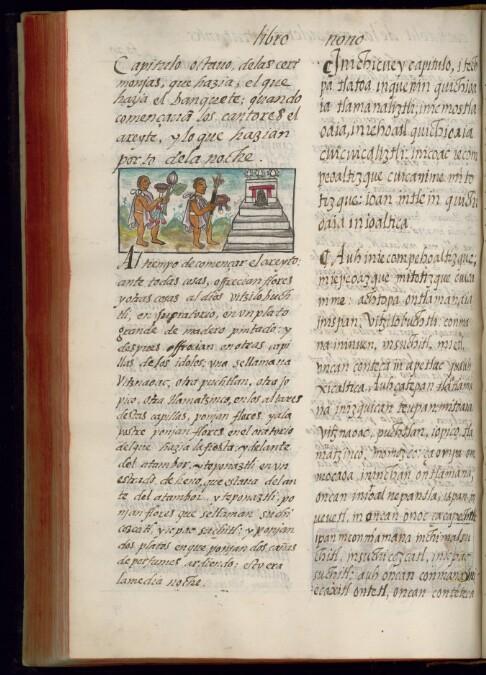 libro nono
Capitulo octauo, delas cere
monjas, que hazia, el que
hazia el banquete; quando
començauā los cantores el
areyto, y lo que hazian
por to dela noche.
Al tiempo de comencar el areyto:
ante todas cosas, ofrecian flores
y otras cosas al dios vitzilobuch
tli, en su oratorio, en vn plato
grande de madero pintado: y
despues offrecian en otras capi
llas de los idolos; vna se llamaua
Vitznaoac, otra puchtlan, otra yo
pico, otra tlamatzinco, en los altares
destas capillas, ponjan flores: y a la
postre ponjan flores en el oratorio
del que hazia la fiesta; y delante
del atambor, y teponaztli; en vn
estrado de heno, que estaua delan
te del atambor, y teponaztli; po
njan flores que se llaman suchi
cozcatl, y icpac suchitl: y ponjan
dos platos en que ponjan dos cañas
de perfumes ardiendo: esto era
la media noche.
Injc chicuey capitulo, itech
pa tlatoa in quenjn quichioa
ia tlamanaliztli; injc mostla
oaia, in iehoatl quichioaia
cuicuicaliztli: in icoac ie com
peoaltizque cuicanime mito
tizque: ioan in tlein quichi
oaia in ioaltica.
Auh in ie compehoaltizque,
in ie peoazque mitotizque cuica
nime: achtopa ontlamanaia
imispan, Vitzilobuchtli: conma
na in inuen, in suchitl, in ietl,
uncan conteca in apetlac quauh
xicaltica. Auh çatepan tlatlama
na in izquican teupan, mitoaia
vitznaoac, puchtlan, iopico, tla
matzinco,
mocaoa, in inchan ontlamana,
oncan in ioalnepantla, ispan in
veuetl, in oncan onoc çacapechtli
ipan meonmamana in chimalsu
chitl, in suchicozcatl, in icpac
suchitl: auh oncan conmana
ecaxitl ontetl, oncan conteca